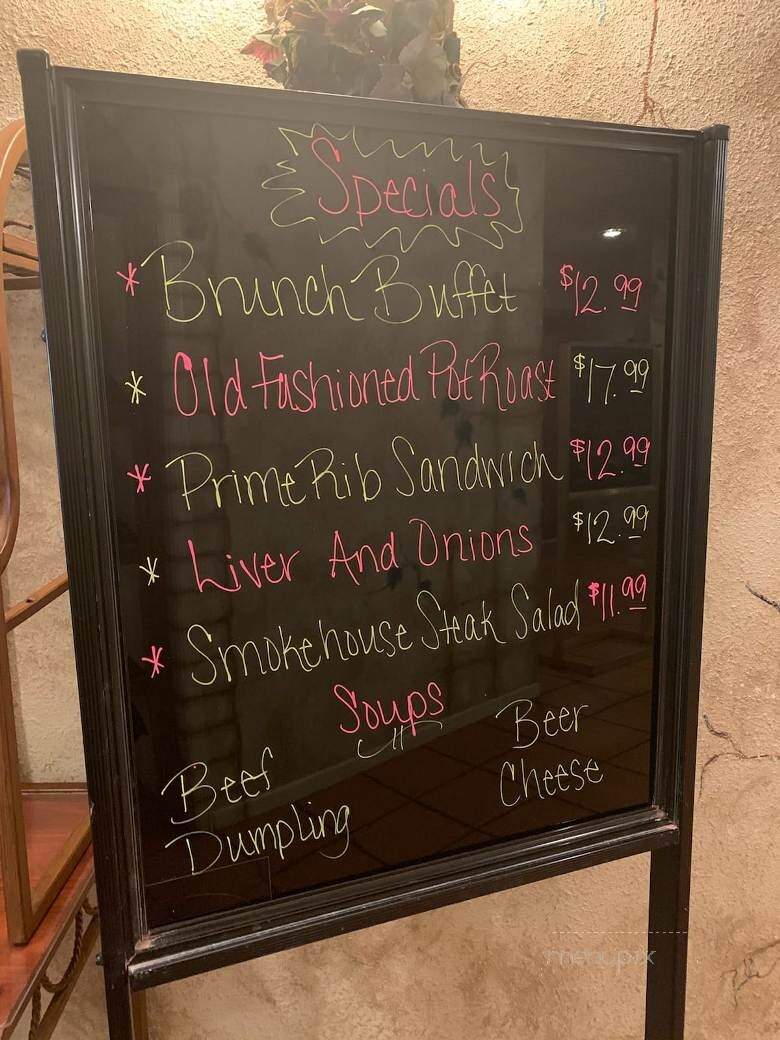 Specials
* Brunch Buffet $12.99
* Old Fashioned Pot Roast $17.99
* Prime Rib Sandwich $12.99
* Liver And Onions $12.99
* Smokehouse Steak Salad $11.99
Soups
Beef Dumpling
Beer Cheese
menupix